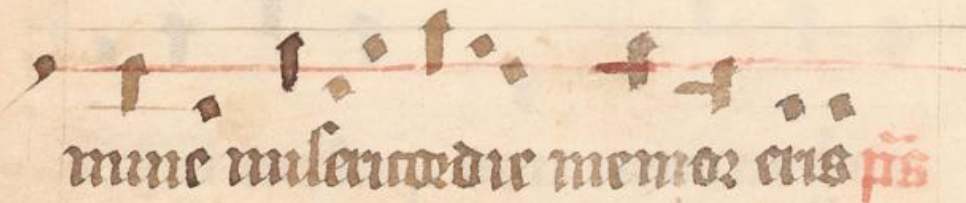 mine misericordie memor eris p̃s